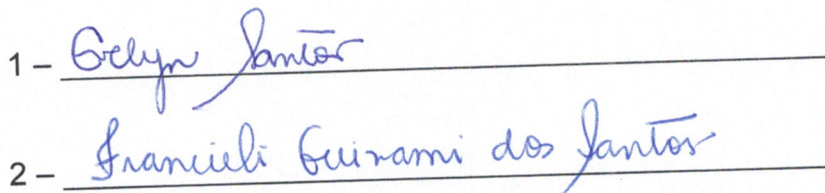 1 – Evelyn Santos
2 – Francieli Guinami dos Santos